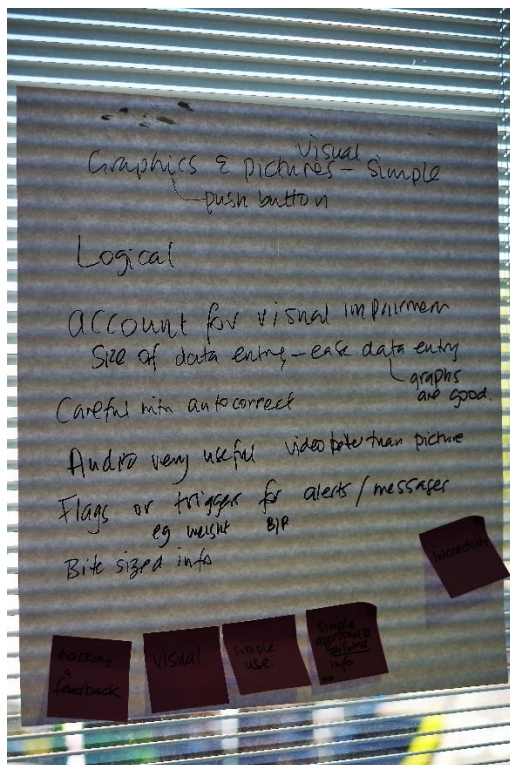 visual
Graphics & pictures - simple
push button
Logical
account for visual impairmen
Size of data entry - ease data entry
graphs
are good.
Careful with autocorrect
Audio very useful video better than picture
Flags or trigger for alerts / messages
eg weight B/P
Bite sized info
tracking
&
feedback
visual
simple
use.
simple
appropriate
info